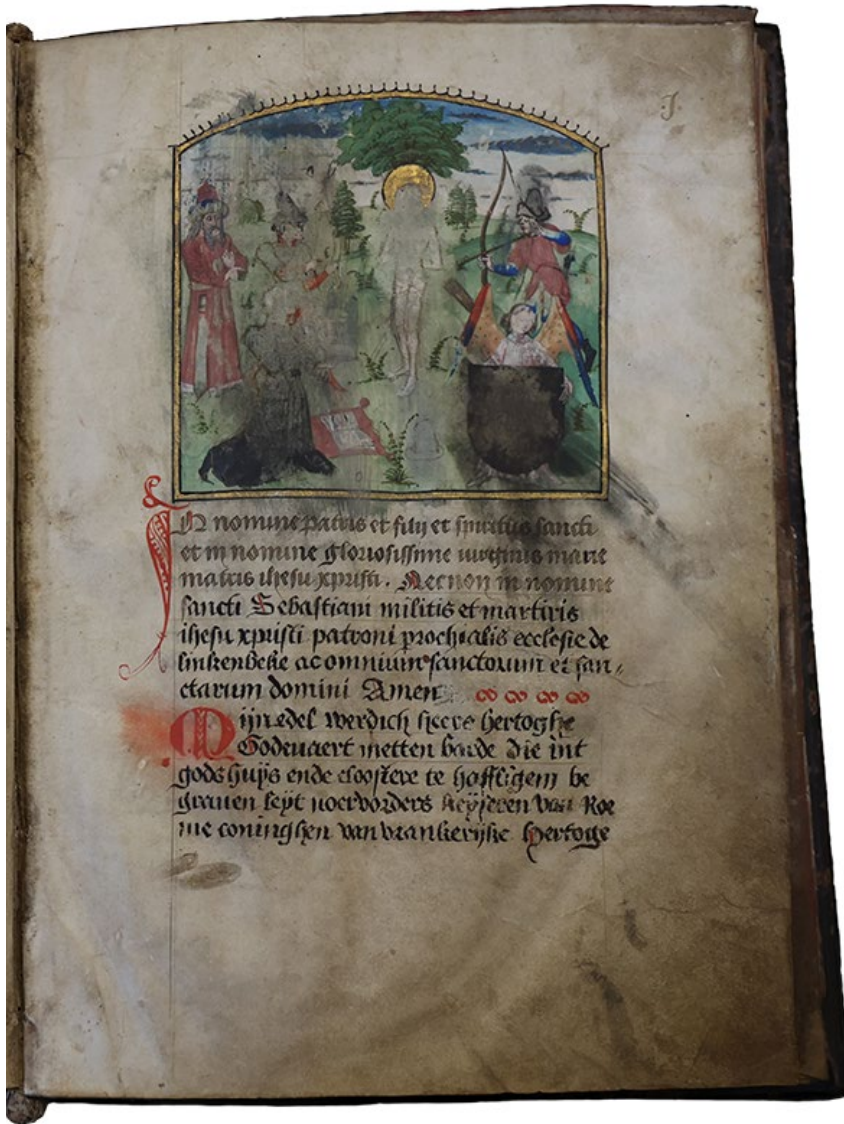 J.
In nomine patris et filij et spiritus sancti
et in nomine gloriosissime virginis marie
matris ihesu xpristi. Necnon in nomine
sancti Sebastiani militis et martiris
ihesu xpristi patroni prochialis ecclesie de
linkenbeke ac omnium sanctorum et san-
ctarum domini Amen
Mijn edel werdich heere hertoghe
Godevaert metten barde die int
gods huijs ende cloostere te haffligem be
graven leijt voervorders keijseren van Roe
me coninghen van vrankerijke hertoge